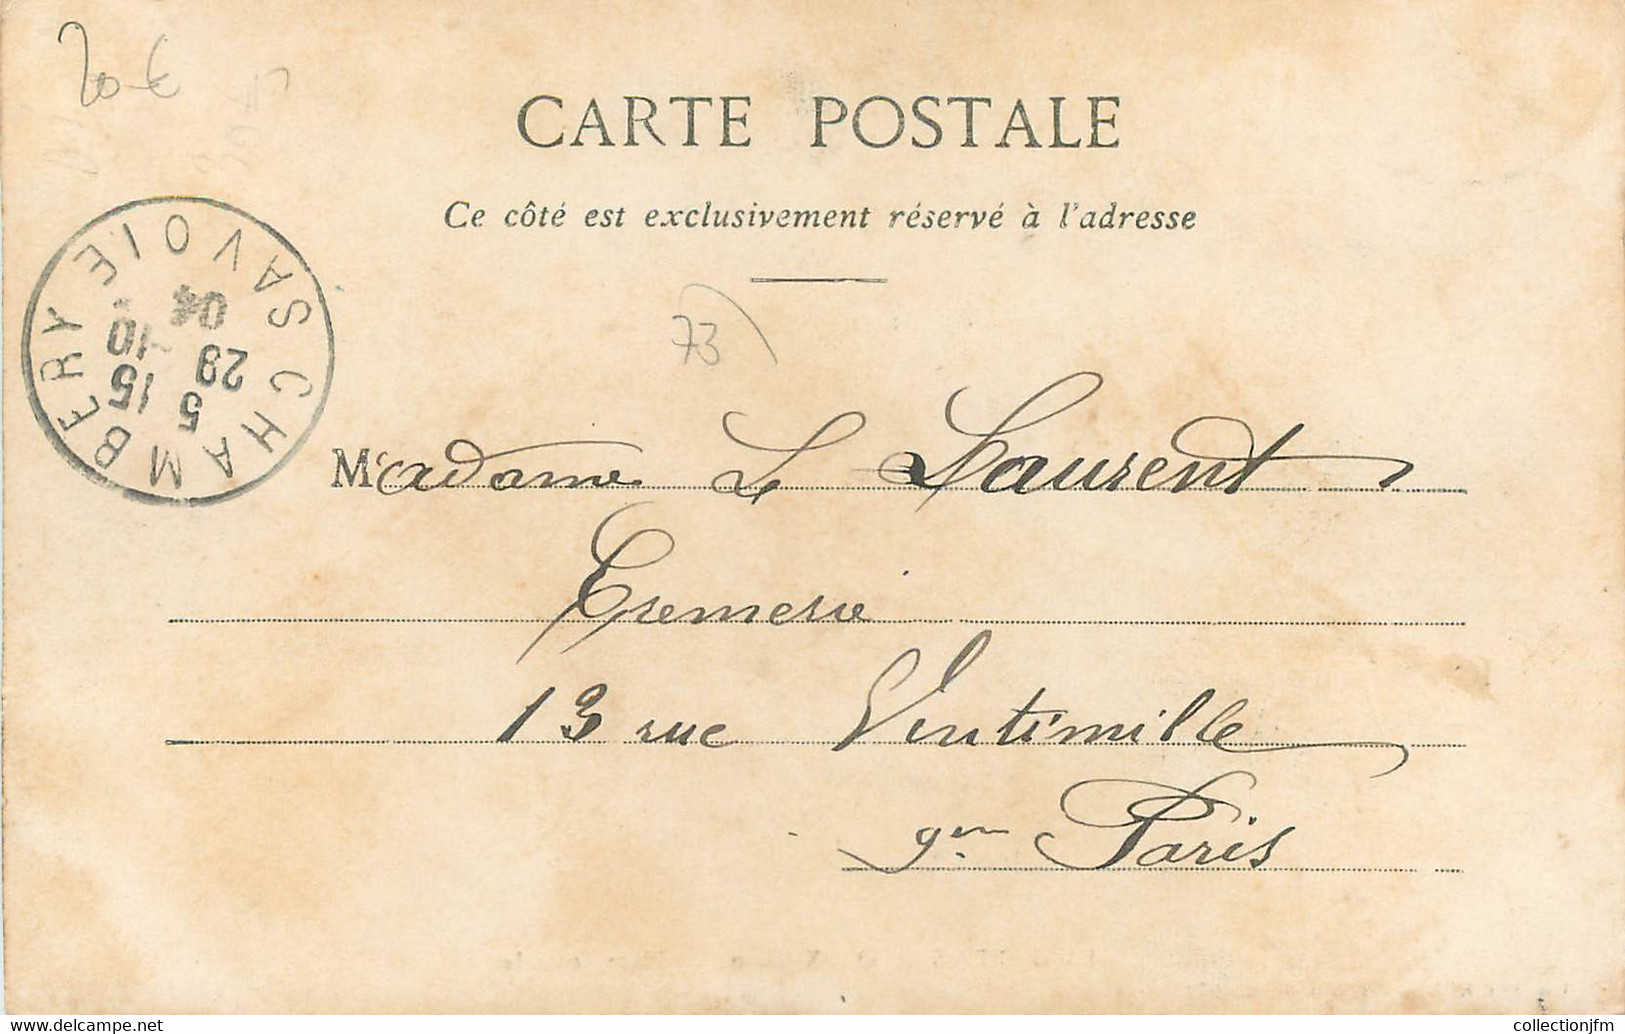 20 €
CARTE POSTALE
Ce côté est exclusivement réservé à l'adresse
CHAMBERY SAVOIE
15 10
5
28
04
73
Madame L Laurent
Cremerie
13 rue Vintimille
9em Paris
collectionjfm